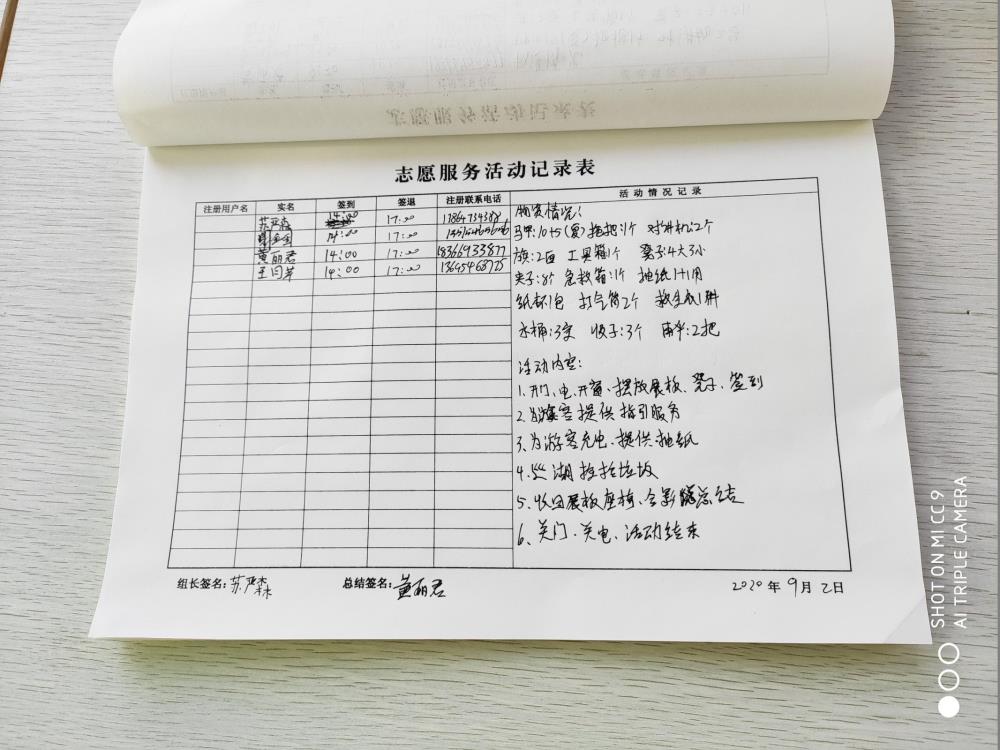 志愿服务活动记录表
注册用户名 实名 签到 签退 注册联系电话 活动情况记录
苏严森 14:00 17:00 17864734388
17:00
黄丽君 14:00 17:00 18366933877
14:00 17:00 13695468725
物资情况:
马甲:10件(蓝) 拖把:1个 对讲机:2个
旗:2面 工具箱1个 凳子:4大3小
夹子:8个 急救箱:1个 抽纸1+1用
纸杯1包 打气筒2个
水桶:3 3个 雨伞:2把
活动内容:
1、开门、电、开窗、摆放展板、凳子、签到
2、为游客提供指引服务
3、为游客充电、提供抽纸
4、巡湖捡拾垃圾
5、收回展板座椅、合影 总结
6、关门、关电、活动结束
组长签名:苏严森 总结签名:黄丽君 2020年9月2日
SHOT ON MI CC 9
AI TRIPLE CAMERA